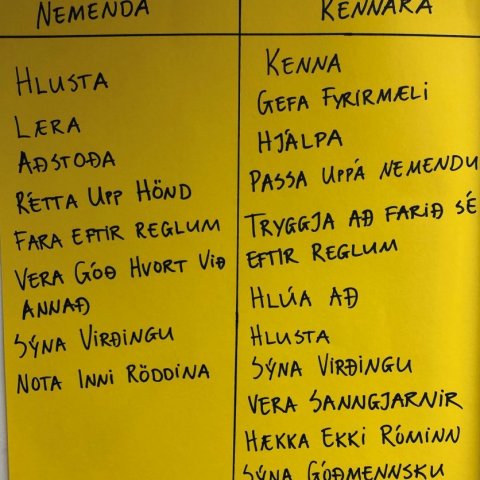 NEMENDA
HLUSTA
LÆRA
AÐSTOÐA
RÉTTA UPP HÖND
FARA EFTIR REGLUM
VERA GÓÐ HVORT VIÐ
ANNAÐ
SÝNA VIRÐINGU
NOTA INNI RÖDDINA
KENNARA
KENNA
GEFA FYRIRMÆLI
HJÁLPA
PASSA UPPÁ NEMENDU
TRYGGJA AÐ FARIÐ SÉ
EFTIR REGLUM
HLÚA AÐ
HLUSTA
SÝNA VIRÐINGU
VERA SANNGJARNIR
HÆKKA EKKI RÓMINN
SÝNA GÓÐMENNSKU